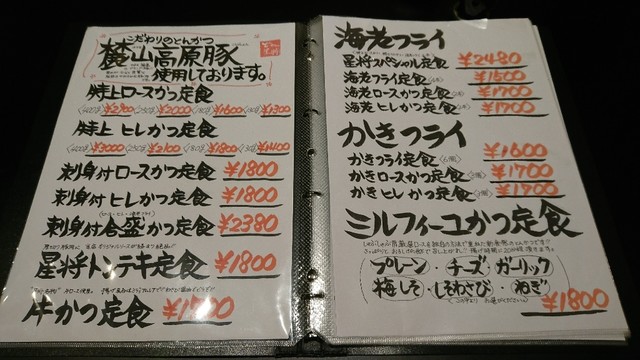 こだわりのとんかつ
麓山高原豚
使用しております。
特上ロースかつ定食
¥2700 ¥2000 ¥1600 ¥1300
特上ヒレかつ定食
¥3000 ¥2100 ¥1800 ¥1400
刺身付ロースかつ定食 ¥1800
刺身付ヒレかつ定食 ¥1800
刺身付合盛かつ定食 ¥2380
星将トンテキ定食 ¥1800
牛かつ定食 ¥1700
海老フライ
星将スペシャル定食 ¥2480
海老フライ定食 ¥1500
海老ロースかつ定食 ¥1700
海老ヒレかつ定食 ¥1700
かきフライ
かきフライ定食 ¥1600
かきロースかつ定食 ¥1700
かきヒレかつ定食 ¥1700
ミルフィーユかつ定食
プレーン・チーズ・ガーリック
梅しそ・しそわさび・ねぎ
¥1800